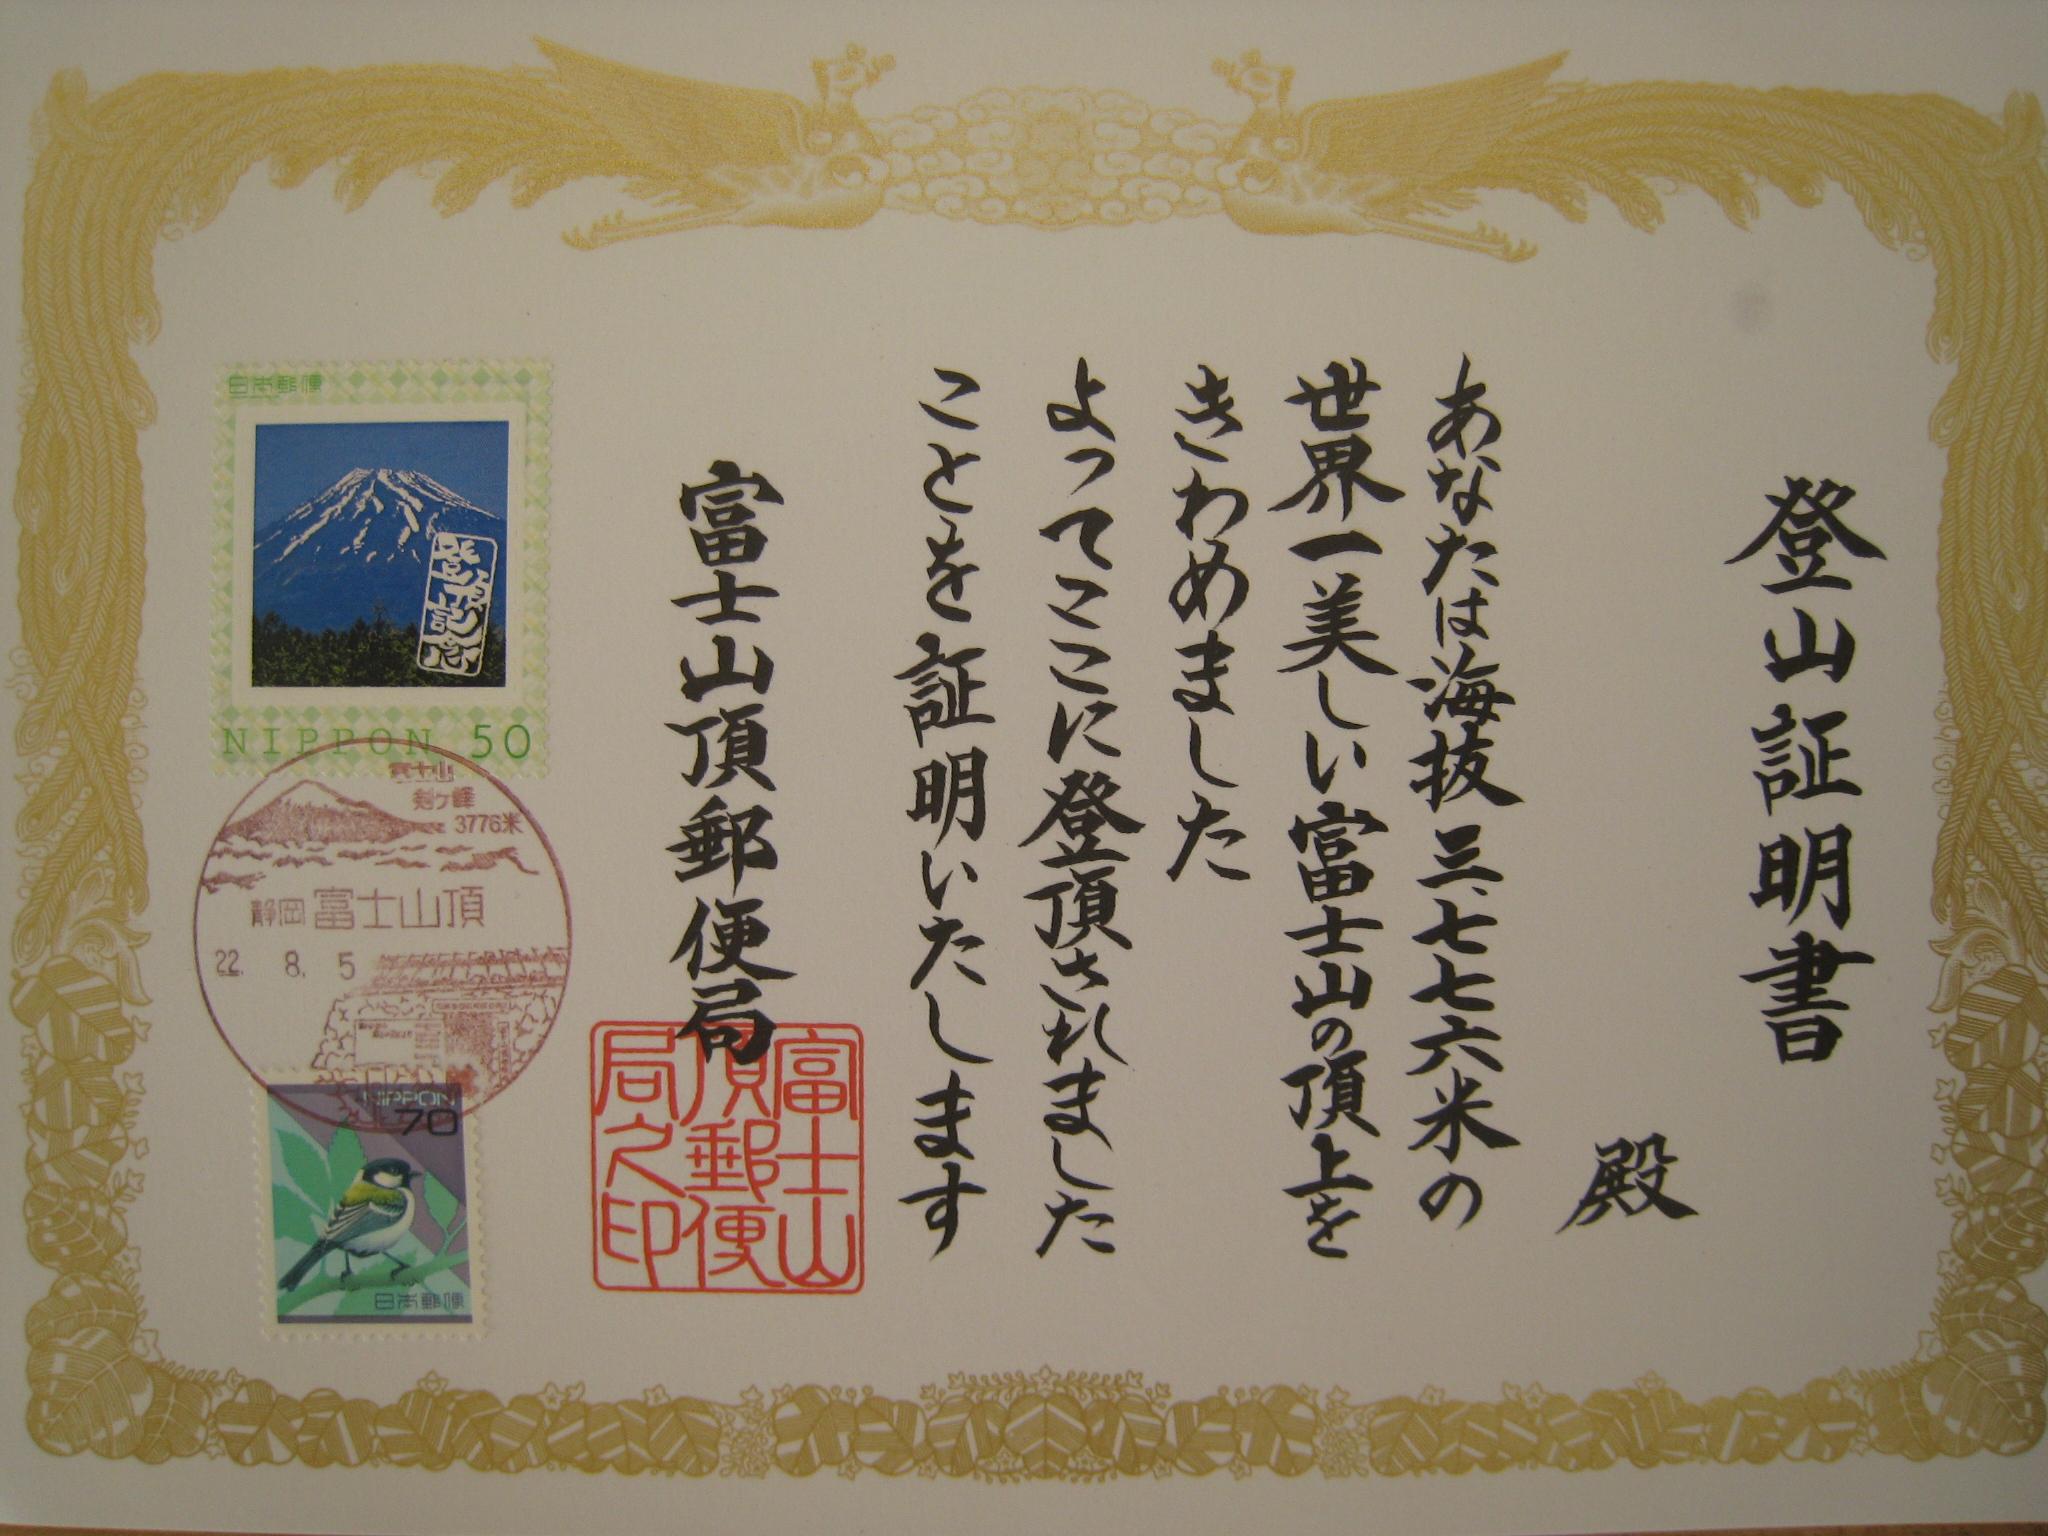 登山証明書
殿
あなたは海抜三、七七六米の
世界一美しい富士山の頂上を
きわめました
よってここに登頂されました
ことを証明いたします
富士山頂郵便局
富士山
頂郵便
局之印
日本郵便
登頂記念
NIPPON 50
富士山
剣ヶ峰
3776米
静岡 富士山頂
22. 8. 5
NIPPON
70
日本郵便